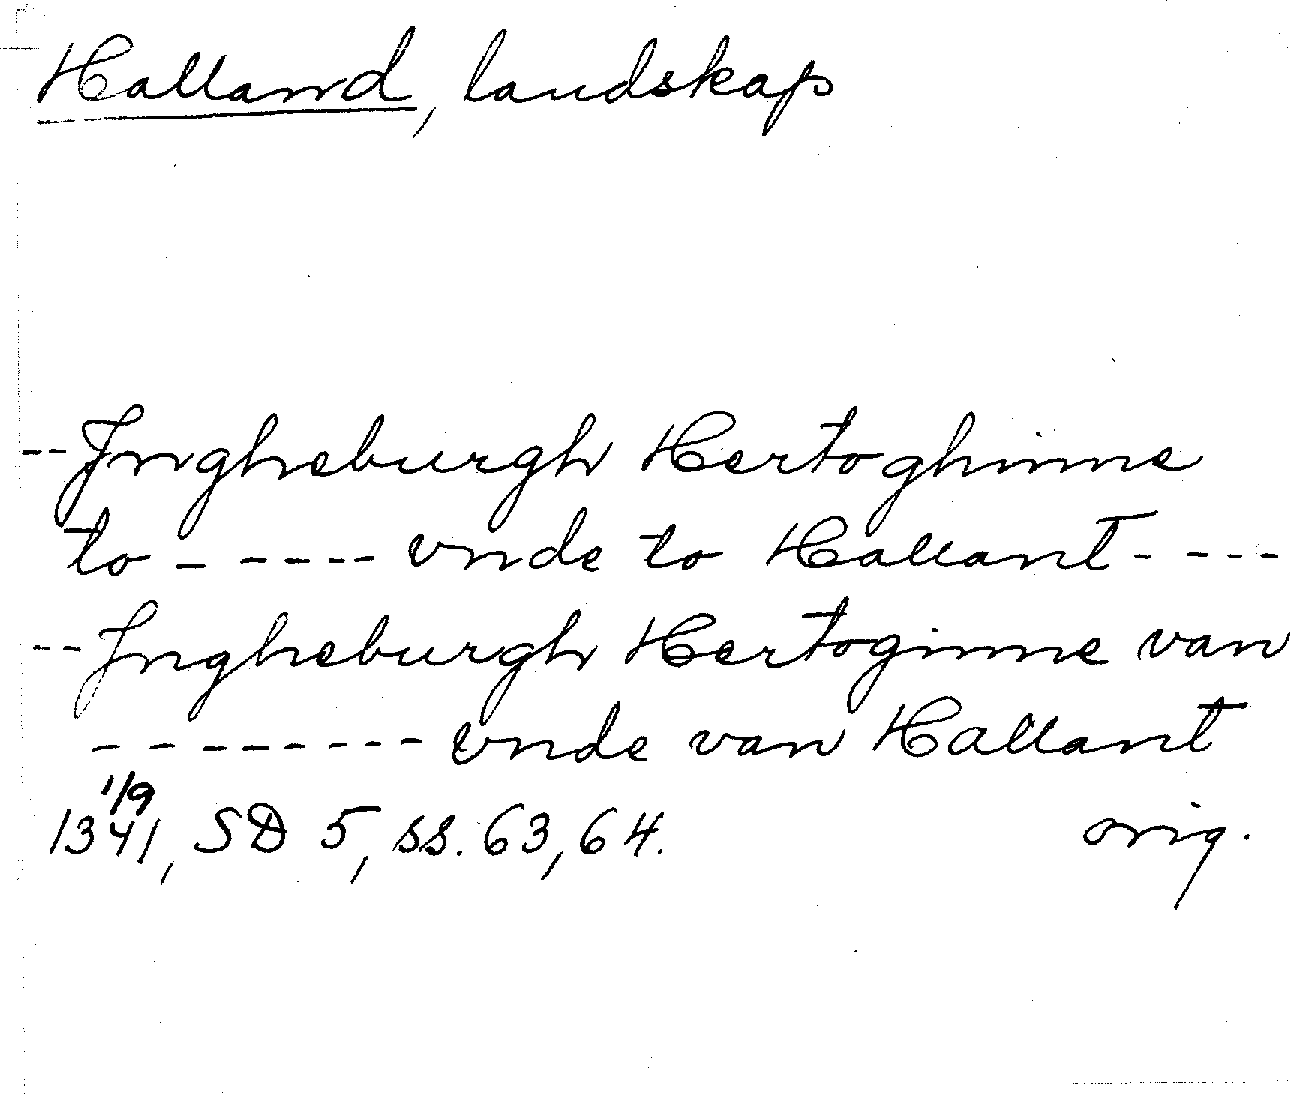 Halland, landskap
--Jngheburgh Hertoghinne
to ----- vnde to Hallant----
--Jngheburgh Hertoginne van
--------- vnde van Hallant
1/9
1341, SD 5, ss. 63, 64. orig.